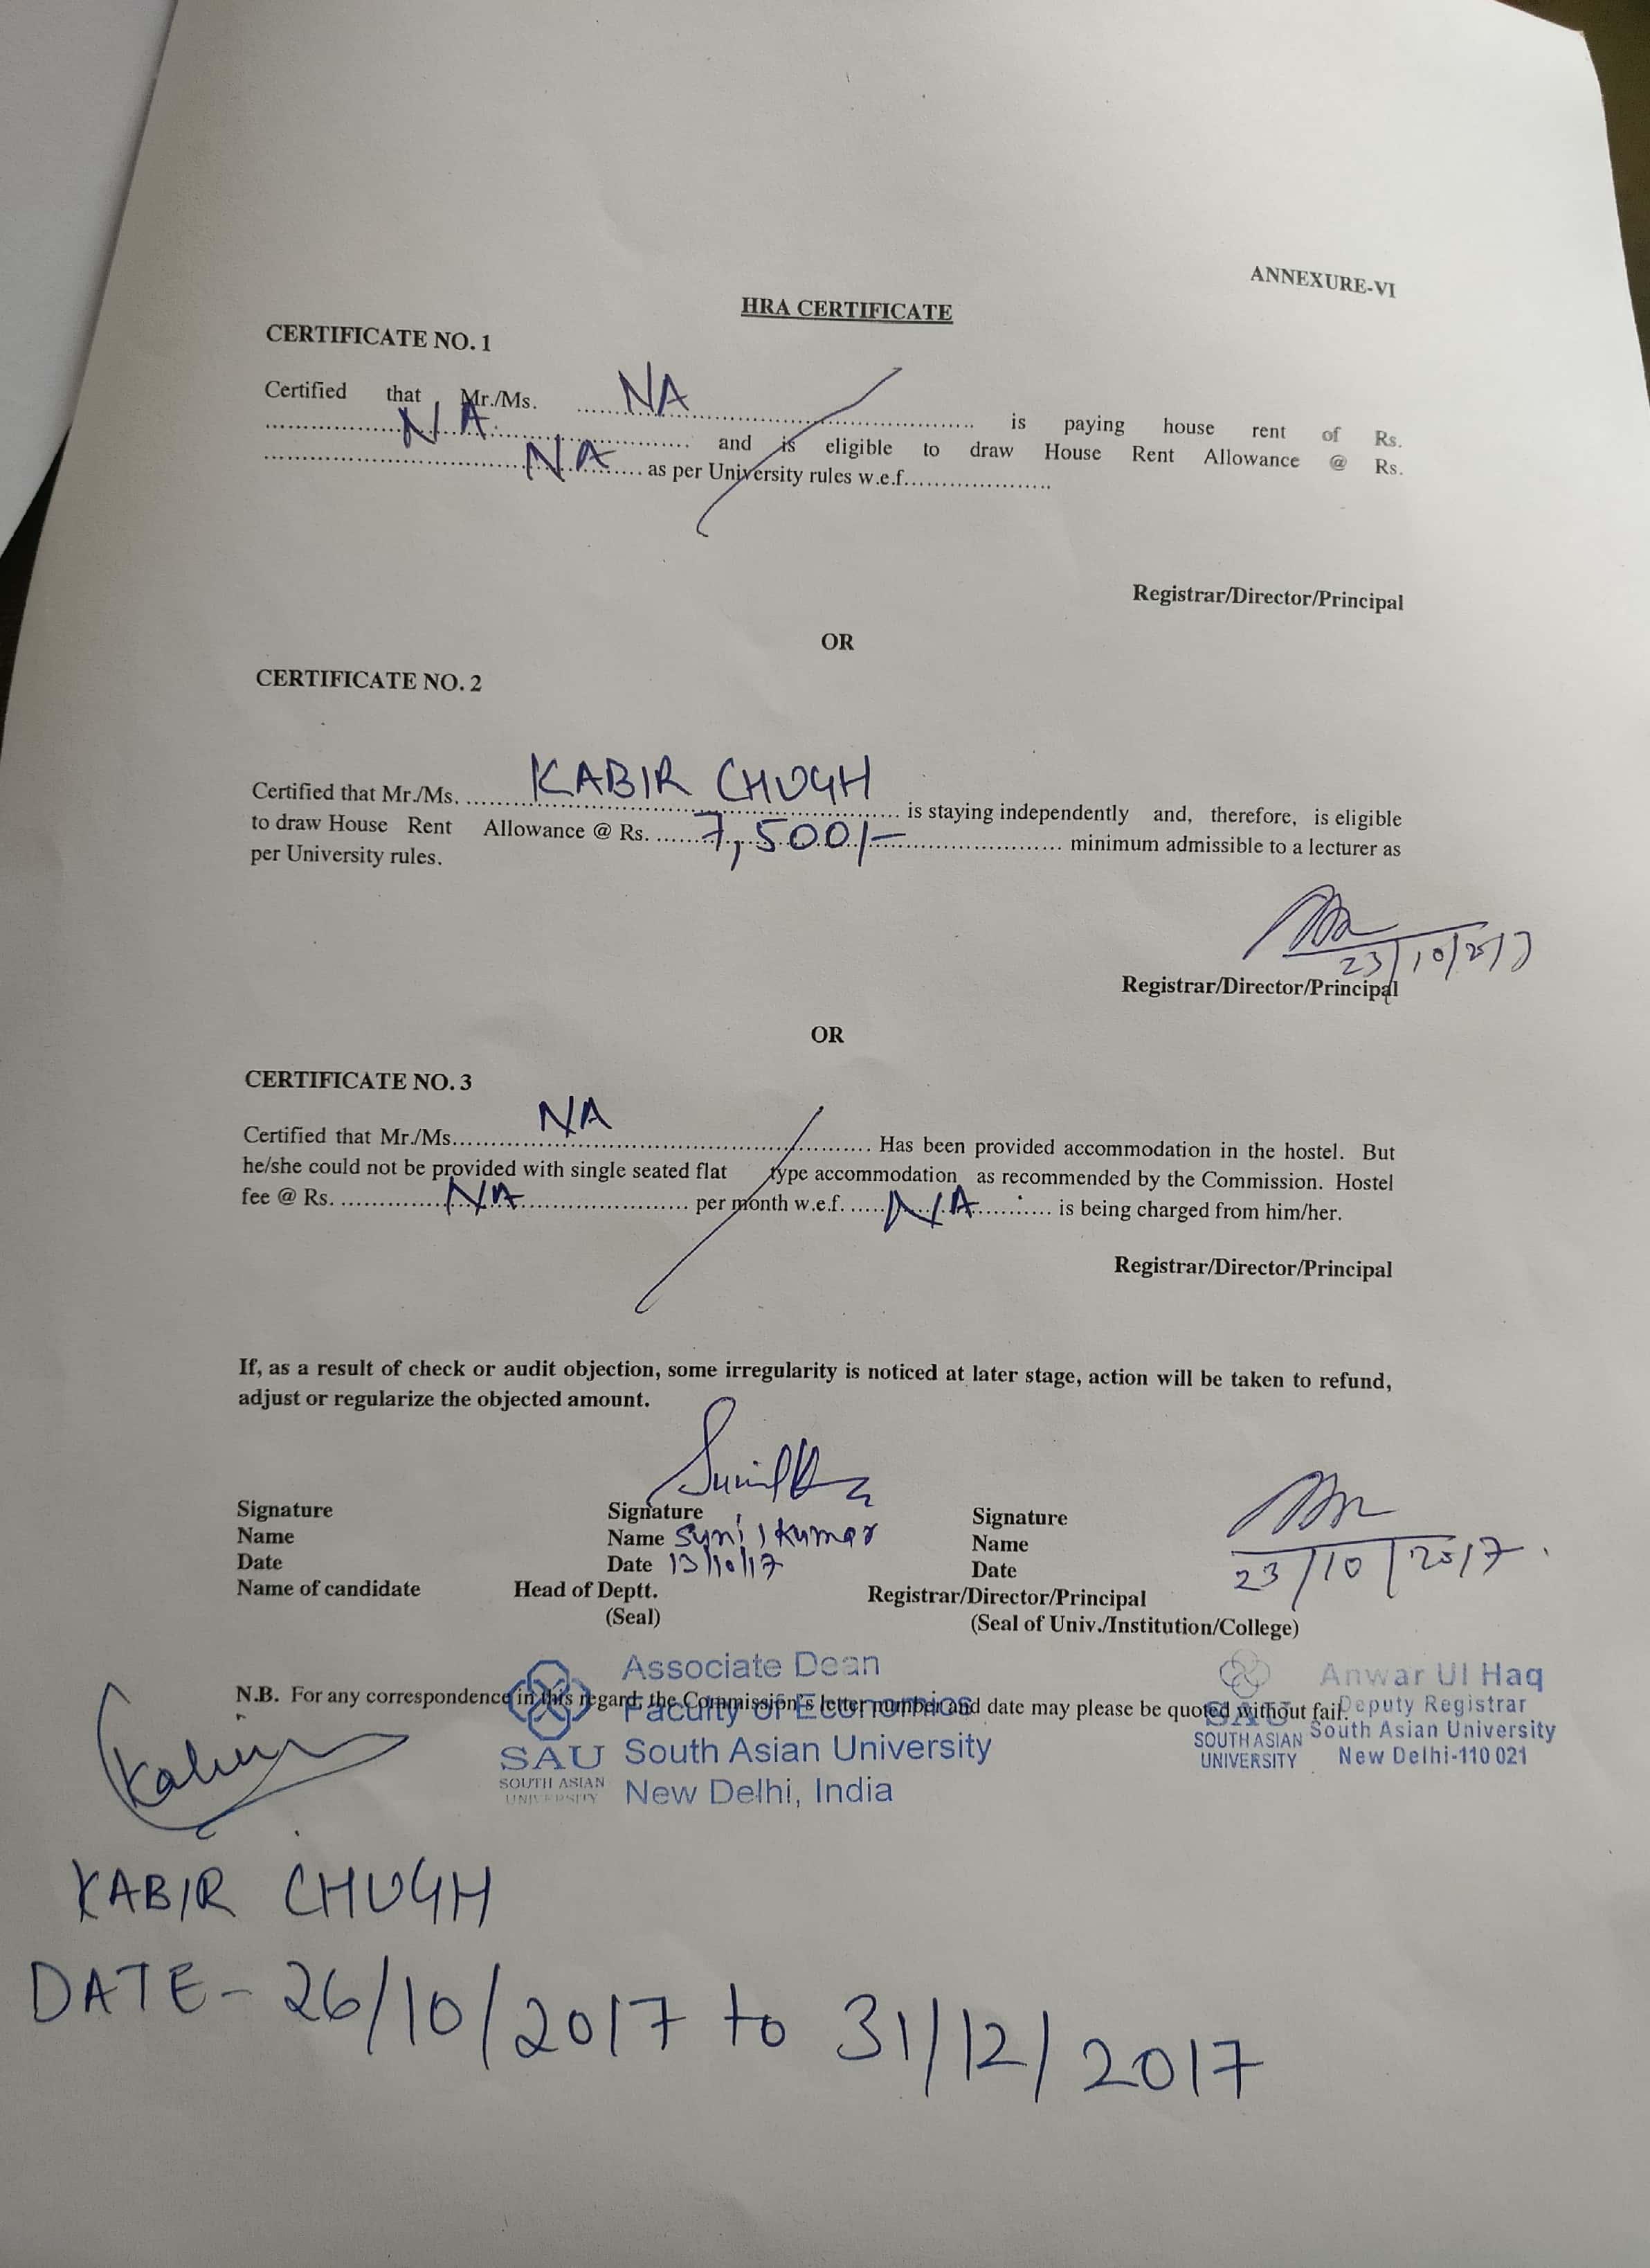 ANNEXURE-VI
HRA CERTIFICATE
CERTIFICATE NO. 1
Certified that Mr./Ms. .....NA..... is paying house rent of Rs.
.....NA..... and is eligible to draw House Rent Allowance @ Rs.
.....NA..... as per University rules w.e.f.....................
Registrar/Director/Principal
OR
CERTIFICATE NO. 2
Certified that Mr./Ms. .....KABIR CHUGH..... is staying independently and, therefore, is eligible
to draw House Rent Allowance @ Rs. .....7,500/-..... minimum admissible to a lecturer as
per University rules.
23/10/2017
Registrar/Director/Principal
OR
CERTIFICATE NO. 3
Certified that Mr./Ms.....NA..... Has been provided accommodation in the hostel. But
he/she could not be provided with single seated flat type accommodation as recommended by the Commission. Hostel
fee @ Rs. .....NA..... per month w.e.f. .....NA..... is being charged from him/her.
Registrar/Director/Principal
If, as a result of check or audit objection, some irregularity is noticed at later stage, action will be taken to refund,
adjust or regularize the objected amount.
Signature Signature Signature
Name Name Sunil Kumar Name
Date Date 13/10/17 Date 23/10/2017
Name of candidate Head of Deptt. Registrar/Director/Principal
(Seal) (Seal of Univ./Institution/College)
N.B. For any correspondence in this regard, the Commission's letter number and date may please be quoted without fail.
Associate Dean
Faculty of Economics
SAU South Asian University
SOUTH ASIAN UNIVERSITY New Delhi, India
Anwar Ul Haq
Deputy Registrar
SAU South Asian University
SOUTH ASIAN UNIVERSITY New Delhi-110 021
Kabir
KABIR CHUGH
DATE - 26/10/2017 to 31/12/2017